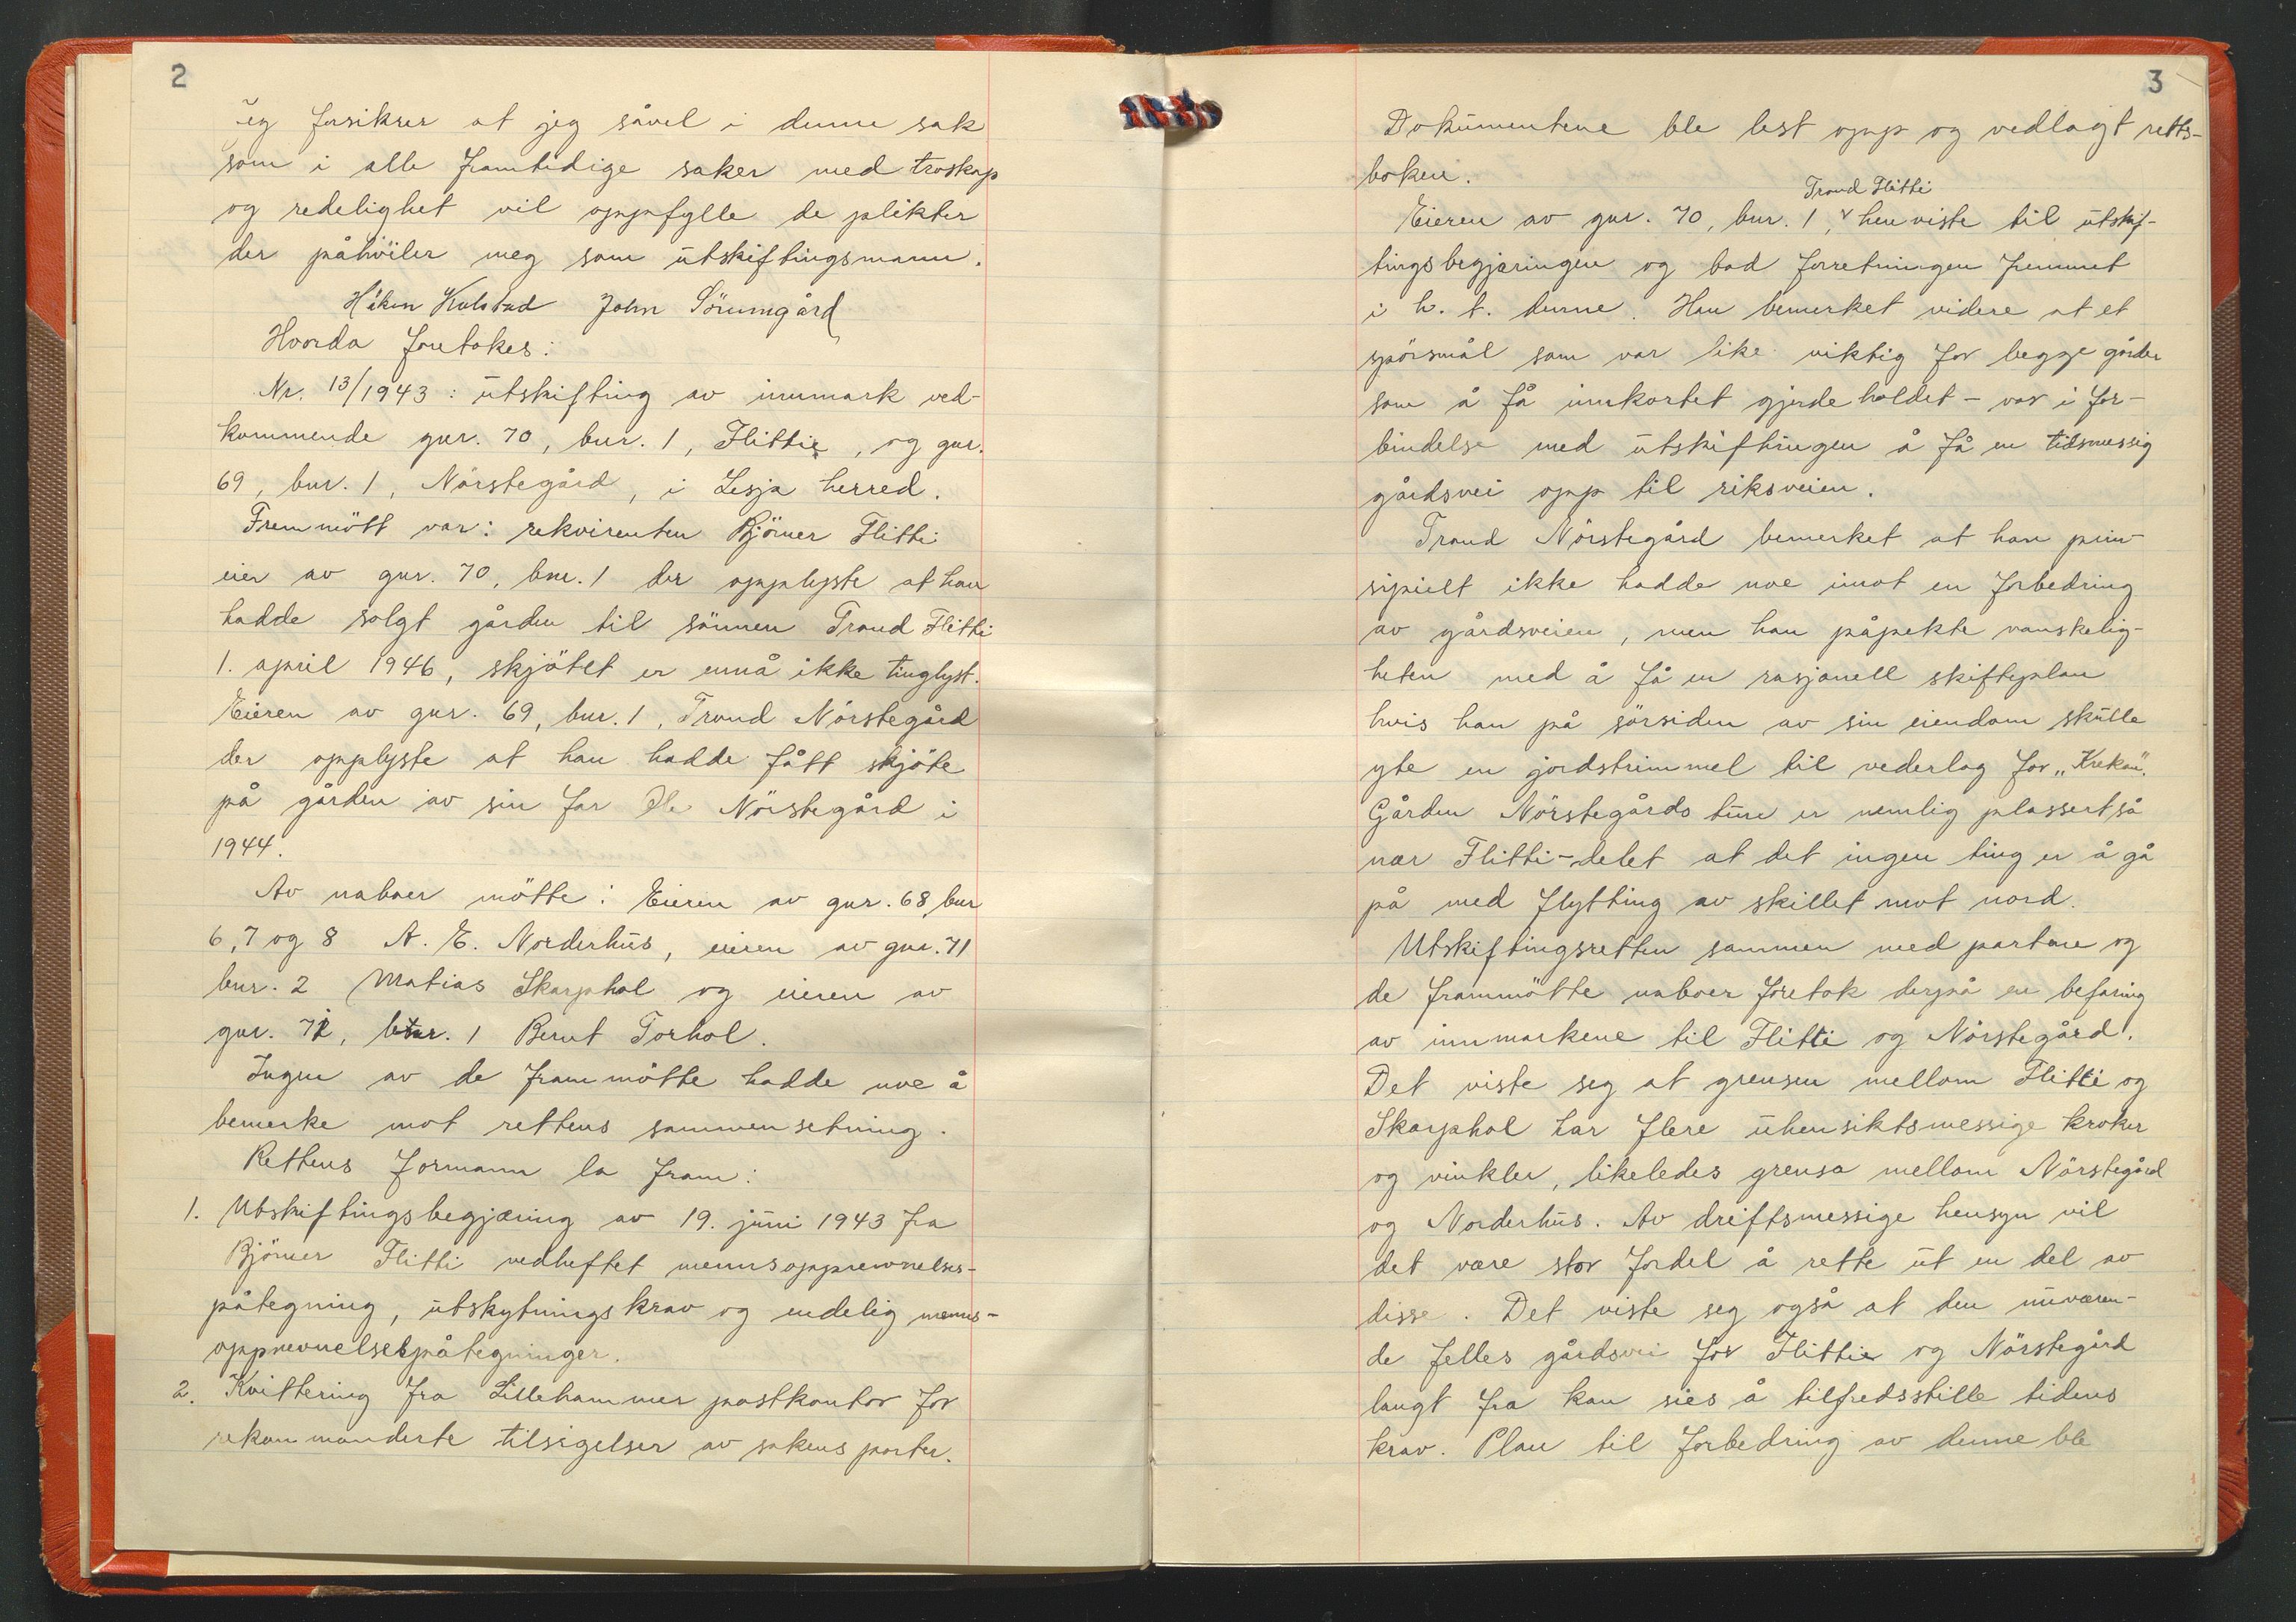 2
Jeg forsikrer at jeg såvel i denne sak
som i alle framtidige saker med troskap
og redelighet vil oppfylle de plikter
der påhviler meg som utskiftingsmann.
Håkon Kolstad John Sörumgård
Hvorda foretokes:
Nr. 13/1943: utskifting av innmark ved-
kommende gnr. 70, bnr. 1, Flittie, og gnr.
69, bnr. 1, Nörstegård, i Lesja herred.
Fremmött var: rekvirenten Björner Flitti
eier av gnr. 70, bnr. 1 der opplyste at han
hadde solgt gården til sönnen Trond Flitti
1. april 1946, skjötet er ennå ikke tinglyst.
Eieren av gnr. 69, bnr. 1, Trond Nörstegård
der opplyste at han hadde fått skjöte
på gården av sin far Ole Nörstegård i
1944.
Av naboer mötte: Eieren av gnr. 68, bnr
6, 7 og 8 A. E. Norderhus, eieren av gnr. 71
bnr. 2 Matias Skarphol og eieren av
gnr. 71, bnr. 1 Bernt Torhol.
Ingen av de frammötte hadde noe å
bemerke mot rettens sammensetning.
Rettens formann la fram:
1. Utskiftingsbegjæring av 19. juni 1943 fra
Björner Flitti vedheftet mennsoppnevnelses-
påtegning, utskytningskrav og endelig menns-
oppnevnelsespåtegninger.
2. Kvittering fra Lillehammer postkontor for
rekommanderte tilsigelser av sakens parter.
3
Dokumentene ble lest opp og vedlagt retts-
boken.
Trond Flitti
Eieren av gnr. 70, bnr. 1, v henviste til utskif-
tingsbegjæringen og bad forretningen fremmet
i h. t. denne. Han bemerket videre at et
spörsmål som var like viktig for begge gårder
som å få innkortet gjerdeholdet – var i for-
bindelse med utskiftingen å få en tidsmessig
gårdsvei opp til riksveien.
Trond Nörstegård bemerket at han prin-
sipielt ikke hadde noe imot en forbedring
av gårdsveien, men han påpekte vanskelig-
heten med å få en rasjonell skifteplan
hvis han på sörsiden av sin eiendom skulle
yte en jordstrimmel til vederlag for „Krekan".
Gården Nörstegårds tun er nemlig plassert så
nær Flitti-delet at det ingen ting er å gå
på med flytting av skillet mot nord.
Utskiftingsretten sammen med partene og
de frammötte naboer foretok derpå en befaring
av innmarkene til Flitti og Nörstegård.
Det viste seg at grensen mellom Flitti og
Skarphol har flere uhensiktsmessige kroker
og vinkler, likeledes grensa mellom Nörstegård
og Norderhus. Av driftsmessige hensyn vil
det være stor fordel å rette ut en del av
disse. Det viste seg også at den nuværen-
de felles gårdsvei for Flittie og Nörstegård
langt fra kan sies å tilfredsstille tidens
krav. Plan til forbedring av denne ble